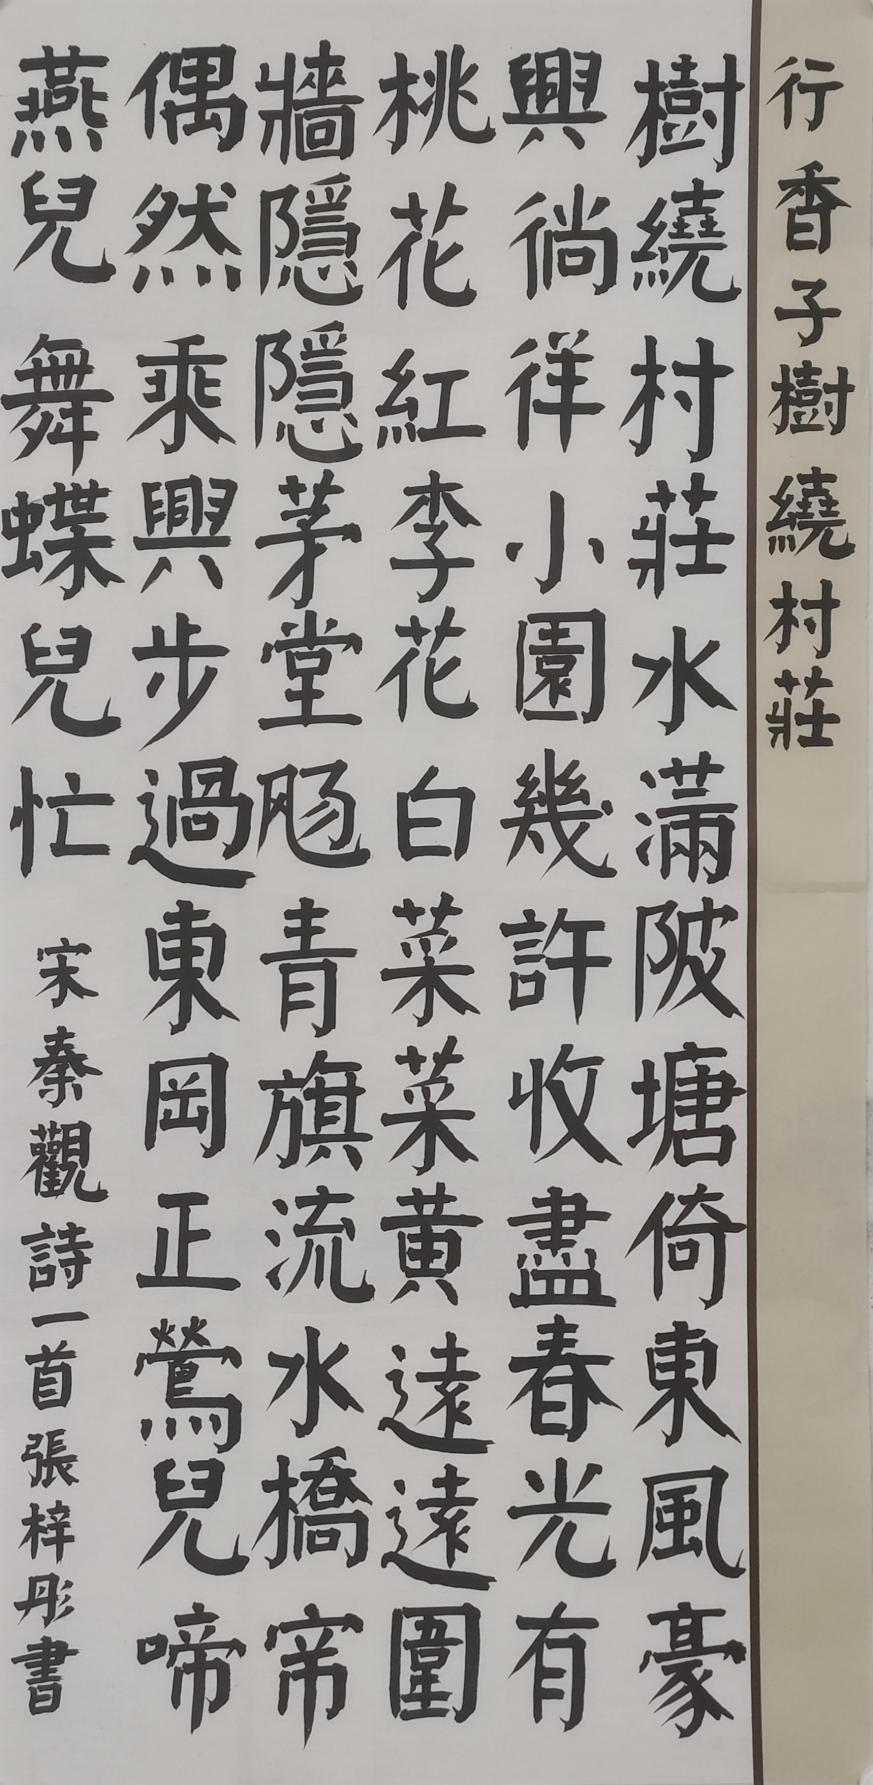 行香子樹繞村莊
樹繞村莊水滿陂塘倚東風豪
興徜徉小園幾許收盡春光有
桃花紅李花白菜菜黃遠遠圍
牆隱隱茅堂飏青旗流水橋帘
偶然乘興步過東岡正鶯兒啼
燕兒舞蝶兒忙 宋秦觀詩一首張梓彤書